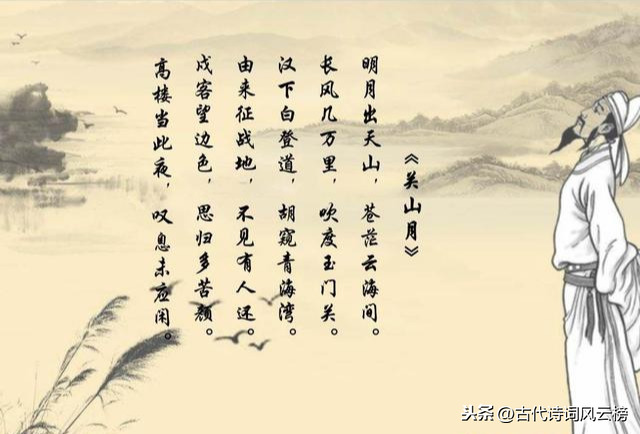 《关山月》
明月出天山，苍茫云海间。
长风几万里，吹度玉门关。
汉下白登道，胡窥青海湾。
由来征战地，不见有人还。
戍客望边色，思归多苦颜。
高楼当此夜，叹息未应闲。
头条@古代诗词风云榜